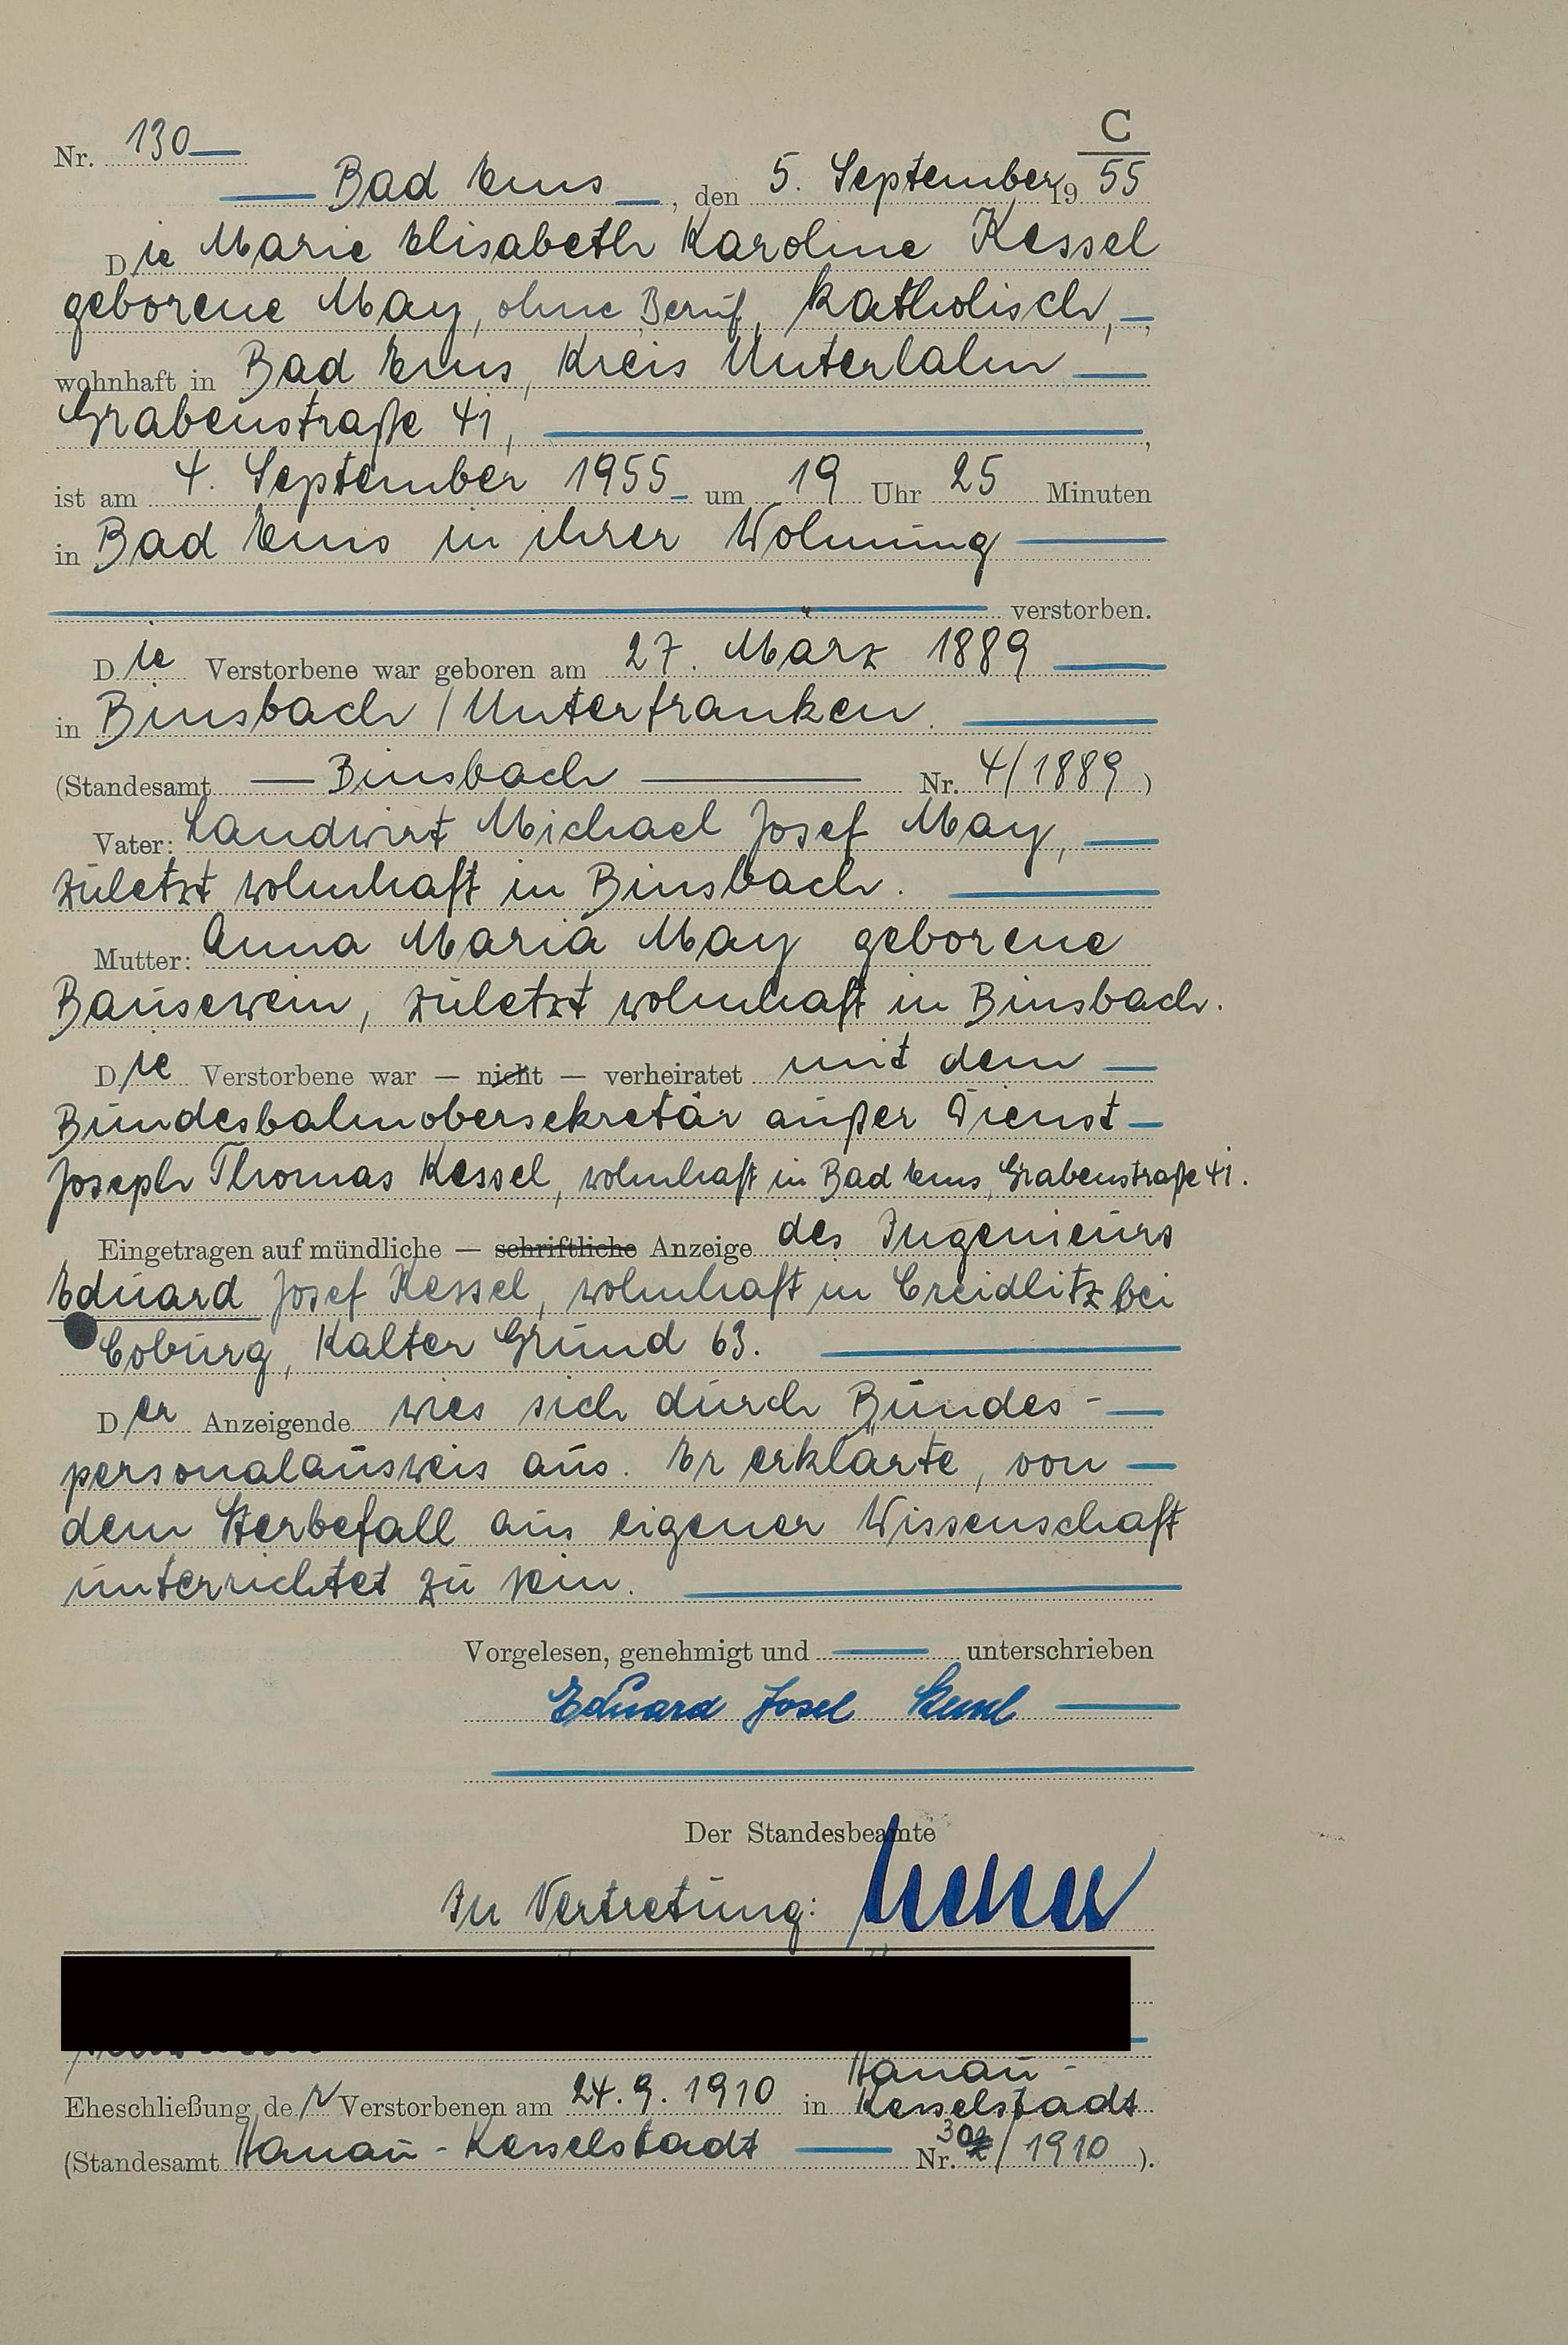 C
Nr. 130
Bad Ems, den 5. September 19 55
Die Marie Elisabeth Karoline Kessel
geborene May, ohne Beruf, katholisch,
wohnhaft in Bad Ems, Kreis Unterlahn
Grabenstraße 41,
ist am 4. September 1955 um 19 Uhr 25 Minuten
in Bad Ems in ihrer Wohnung
verstorben.
Die Verstorbene war geboren am 27. März 1889
in Binsbach / Unterfranken.
(Standesamt Binsbach Nr. 4/1889)
Vater: Landwirt Michael Josef May,
zuletzt wohnhaft in Binsbach.
Mutter: Anna Maria May geborene
Bausewein, zuletzt wohnhaft in Binsbach.
Die Verstorbene war — nicht — verheiratet mit dem
Bundesbahnobersekretär außer Dienst
Joseph Thomas Kessel, wohnhaft in Bad Ems, Grabenstraße 41.
Eingetragen auf mündliche — schriftliche Anzeige des Ingenieurs
Eduard Josef Kessel, wohnhaft in Creidlitz bei
Coburg, Kalter Grund 63.
Der Anzeigende wies sich durch Bundes-
personalausweis aus. Er erklärte, von
dem Sterbefall aus eigener Wissenschaft
unterrichtet zu sein.
Vorgelesen, genehmigt und unterschrieben
Eduard Josef Kessel
Der Standesbeamte
In Vertretung:
Hanau-
Eheschließung der Verstorbenen am 24.9.1910 in Kesselstadt
(Standesamt Hanau-Kesselstadt Nr. /1910).